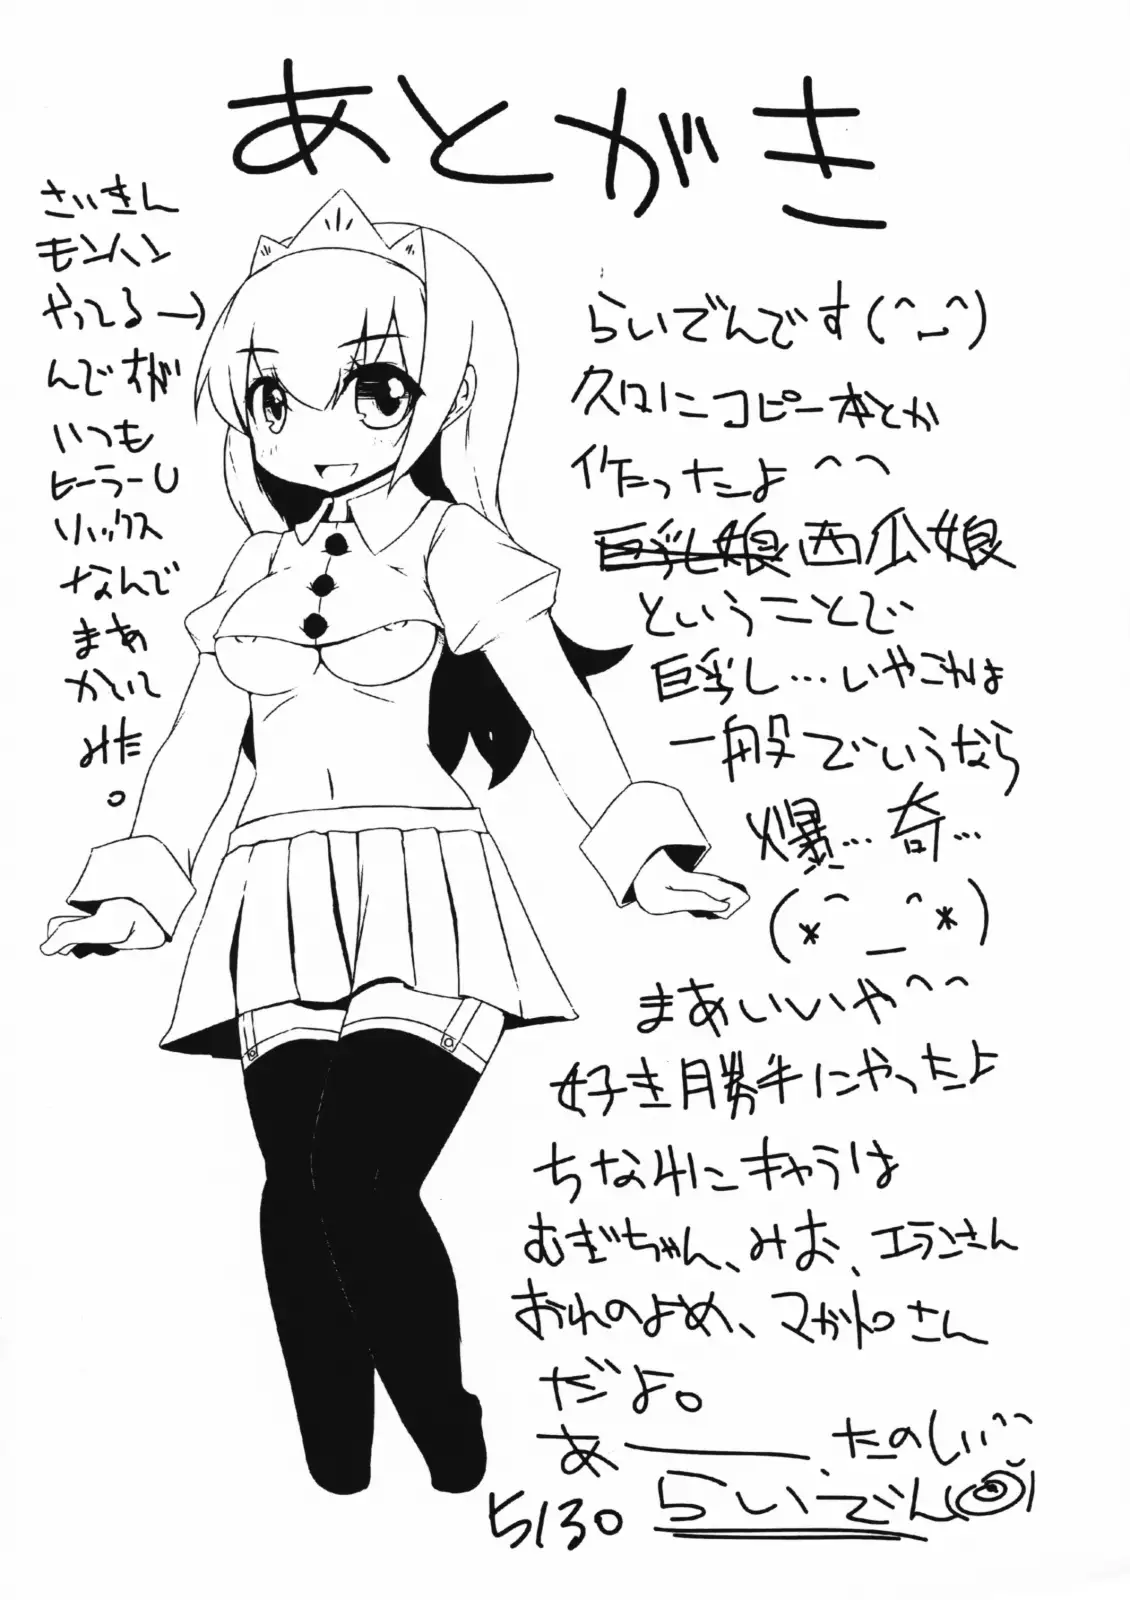 あとがき
さいきん
モンハン
やってる→
んですが
いつも
ヒーラーU
ソックス
なんで
まあ
かいて
みた
。
らいでんです(^_^)
久々にコピー本とか
作ったよ^^
巨乳娘 西瓜娘
ということで
巨乳し…いやこれは
一般でいうなら
爆…奇…
(*^_^*)
まあいいや^^
好き勝手にやったよ
ちなみにキャラは
むぎちゃん、みお、エランさん
おれのよめ、マガトロさん
だよ。
あ――、たのしい^^
5/30 らいでん